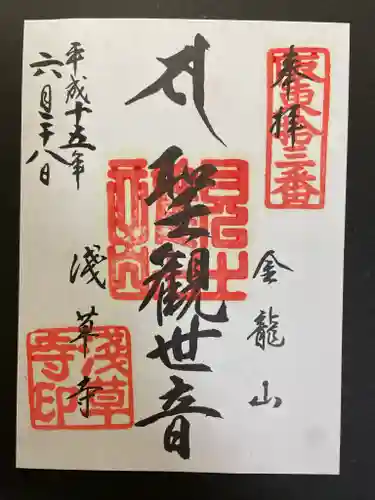 奉拝
坂東拾三番
金龍山
聖観世音
浅草寺
平成十五年
六月二十八日
浅草寺印